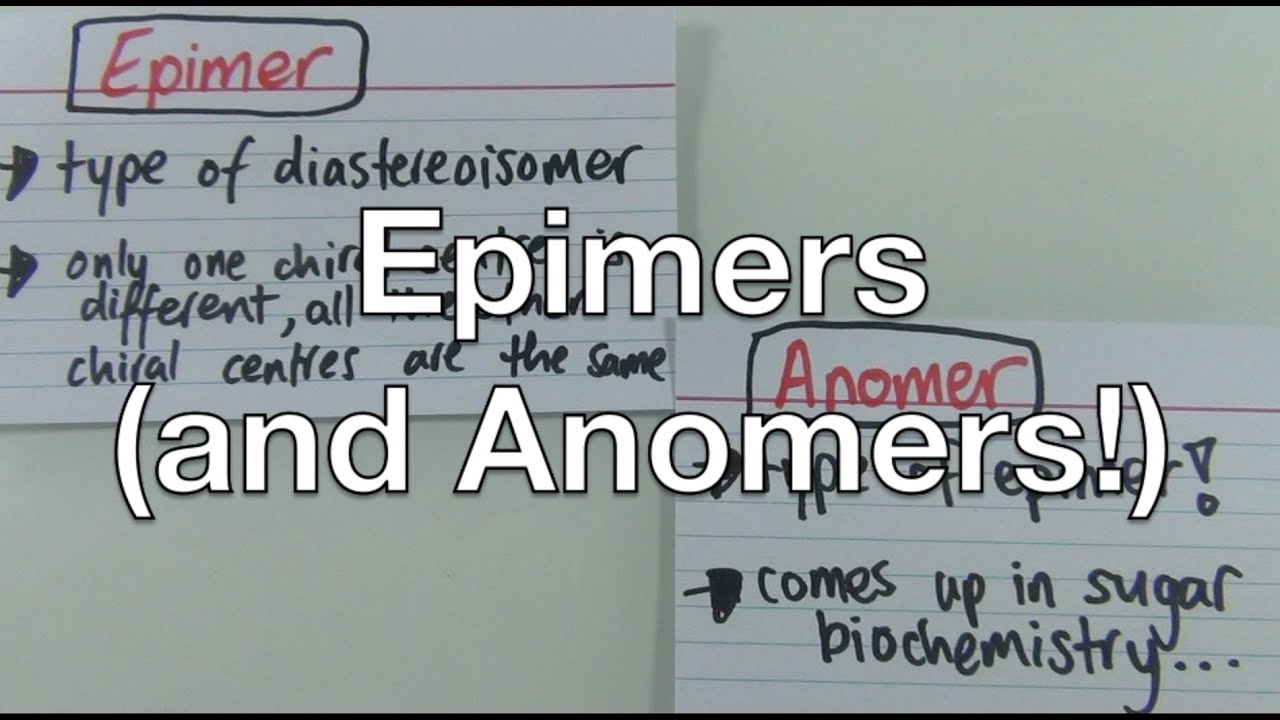 Epimer
→ type of diastereoisomer
→ only one chiral centre is
different, all the other
chiral centres are the same
Epimers
(and Anomers!)
Anomer
→ type of epimer!
→ comes up in sugar
biochemistry...